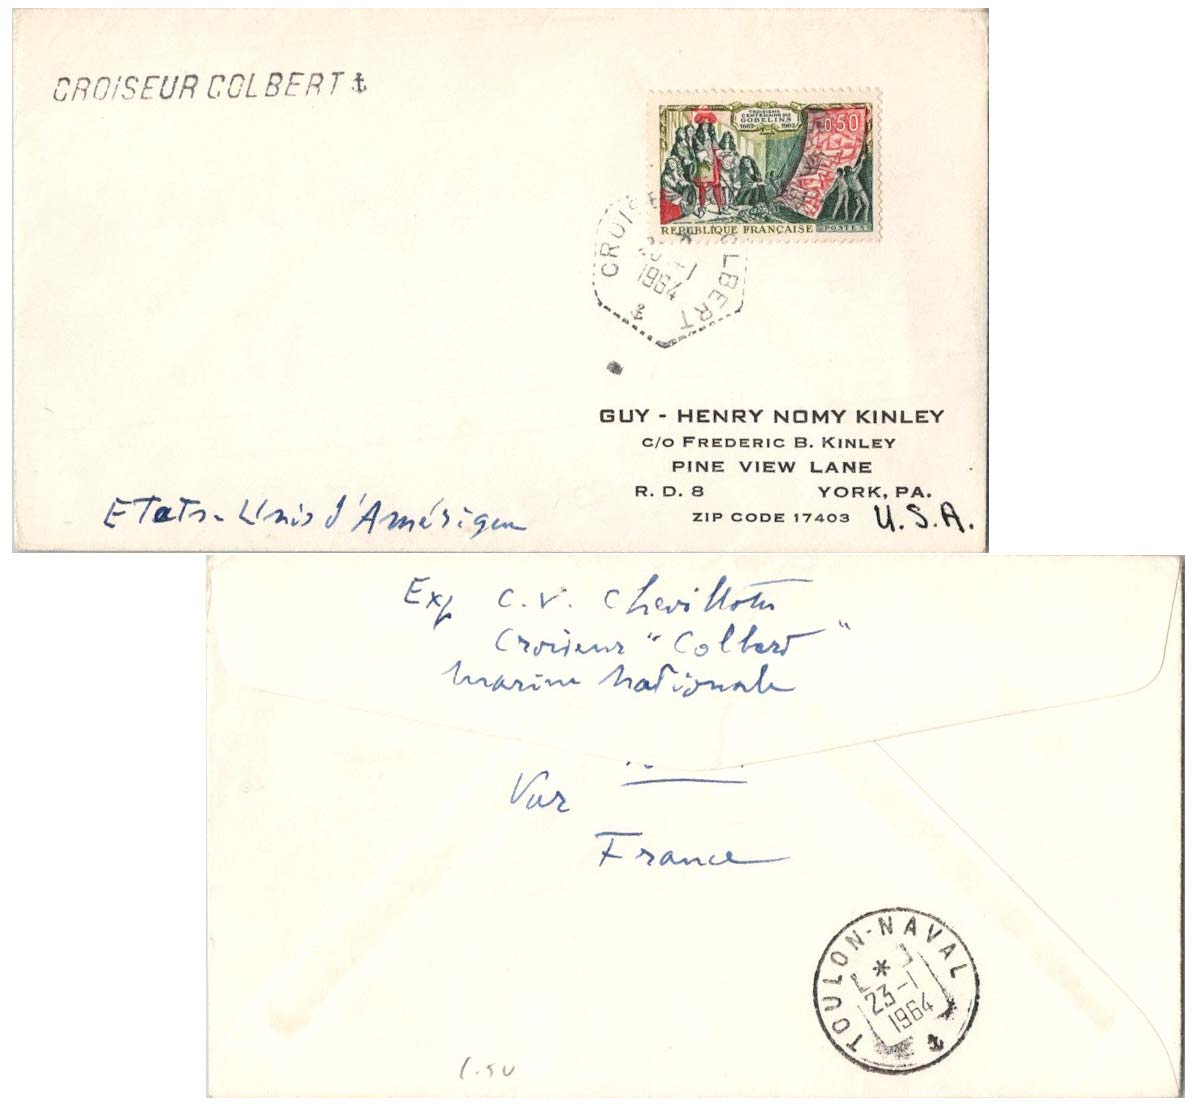 CROISEUR COLBERT
TROISIEME
CENTENAIRE DES
GOBELINS
1662 1962
0,50
REPUBLIQUE FRANÇAISE POSTES
CROISEUR COLBERT
1964
GUY - HENRY NOMY KINLEY
C/O FREDERIC B. KINLEY
PINE VIEW LANE
R. D. 8 YORK, PA.
ZIP CODE 17403 U.S.A.
Etats-Unis d'Amérique
Exp C.V. Chevillotte
Croiseur "Colbert"
Marine Nationale
Var
France
TOULON-NAVAL
*
23-1
1964
1.50